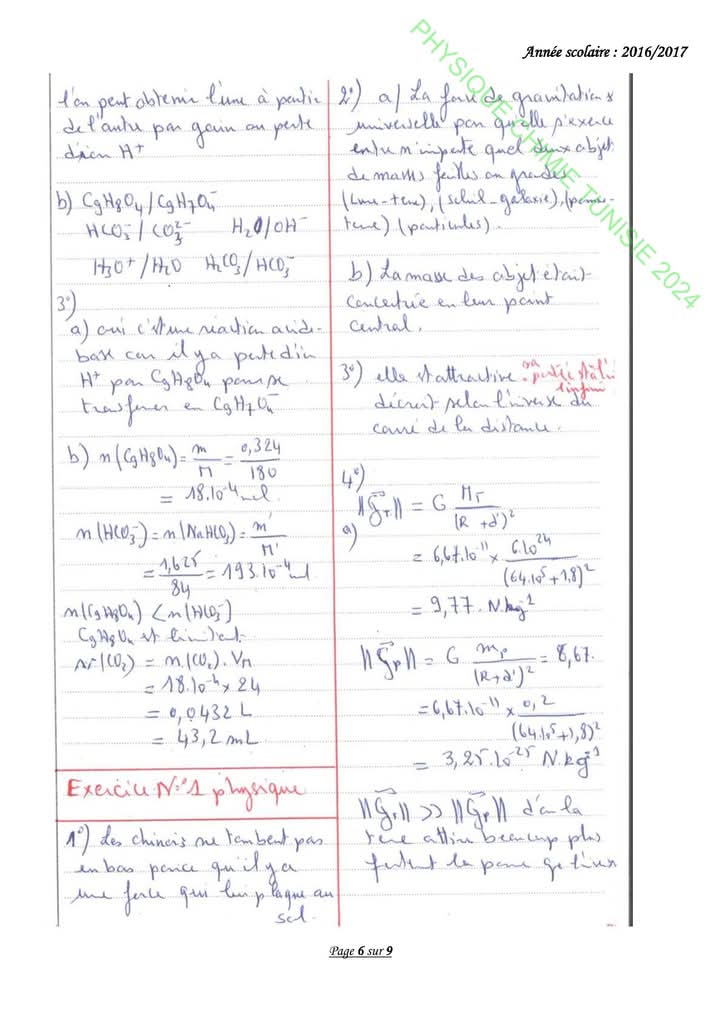 Année scolaire : 2016/2017
PHYSIQUE CHIMIE TUNISIE 2024
l'on peut obtenir l'une à partir
de l'autre par gain ou perte
d'ion H⁺
b) C₉H₈O₄ / C₉H₇O₄⁻
HCO₃⁻ / CO₃²⁻ H₂O/OH⁻
H₃O⁺/H₂O H₂CO₃/HCO₃⁻
3°)
a) oui c'est une réaction acide-
base car il y a perte d'ion
H⁺ par C₉H₈O₄ pour se
transformer en C₉H₇O₄⁻
b) n(C₉H₈O₄) = m/M = 0,324/180
= 18.10⁻⁴ mol
n(HCO₃⁻) = n(NaHCO₃) = m'/M'
= 1,625/84 = 193.10⁻⁴ mol
n(C₉H₈O₄) < n(HCO₃⁻)
C₉H₈O₄ est limitant
V(CO₂) = n(CO₂) . V_M
= 18.10⁻⁴ × 24
= 0,0432 L
= 43,2 mL
Exercice N°1 physique
1°) Les chinois ne tombent pas
en bas parce qu'il y a
une force qui les plaque au
sol.
2°) a/ La force de gravitation
universelle par qu'elle s'exerce
entre n'importe quel deux objet
de masses faibles ou grandes
(Lune-terre), (soleil-galaxie), (pomme-
terre) (particules).
b) La masse des objet était
concentrée en leur point
central.
3°) elle est attractive. sa portée
infini
décroit selon l'inverse du
carré de la distance.
4°)
a) ||G⃗_T|| = G M_T/(R + d')²
= 6,67.10⁻¹¹ × 6.10²⁴/(64.10⁵+1,8)²
= 9,77. N.kg⁻¹
||G⃗_p|| = G m_p/(R+d')² = 8,67.
= 6,67.10⁻¹¹ × 0,2/(64.10⁵+1,8)²
= 3,25.10⁻²⁵ N.kg⁻¹
||G⃗_T|| >> ||G⃗_p|| d'où la
terre attire beaucoup plus
la pomme
Page 6 sur 9